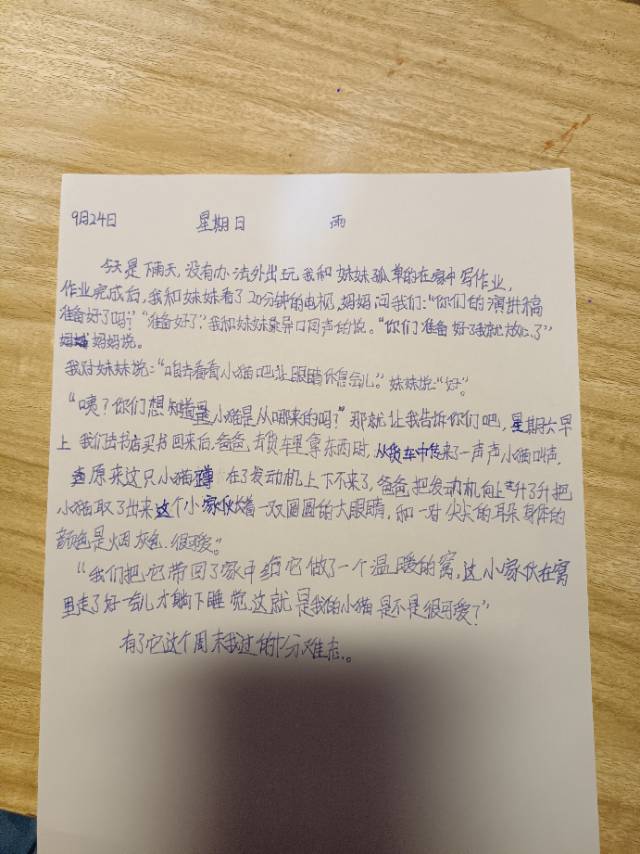 9月24日 星期日 雨
今天是下雨天,没有办法外出玩我和妹妹孤单的在家中写作业,
作业完成后,我和妹妹看了20分钟的电视,妈妈问我们:“你们的演讲稿
准备好了吗?”“准备好了”,我和妹妹异口同声的说。“你们准备好我就放心了”
妈妈说。
我对妹妹说:“咱去看看小猫吧让眼睛休息会儿。”妹妹说:“好”。
“咦?你们想知道小猫是从哪来的吗?”那就让我告诉你们吧,星期六早
上我们去书店买书回来后,爸爸去货车里拿东西时,从货车中传来了一声声小猫叫声,
原来这只小猫蹲在了发动机上下不来了,爸爸把发动机向上升了升把
小猫取了出来这个小家伙有着一双圆圆的大眼睛,和一对尖尖的耳朵身体的
颜色是烟灰色.很可爱。
“我们把它带回了家中给它做了一个温暖的窝,这小家伙在窝
里走了好一会儿才躺下睡觉,这就是我的小猫是不是很可爱?”
有了它这个周末我过的十分难忘。